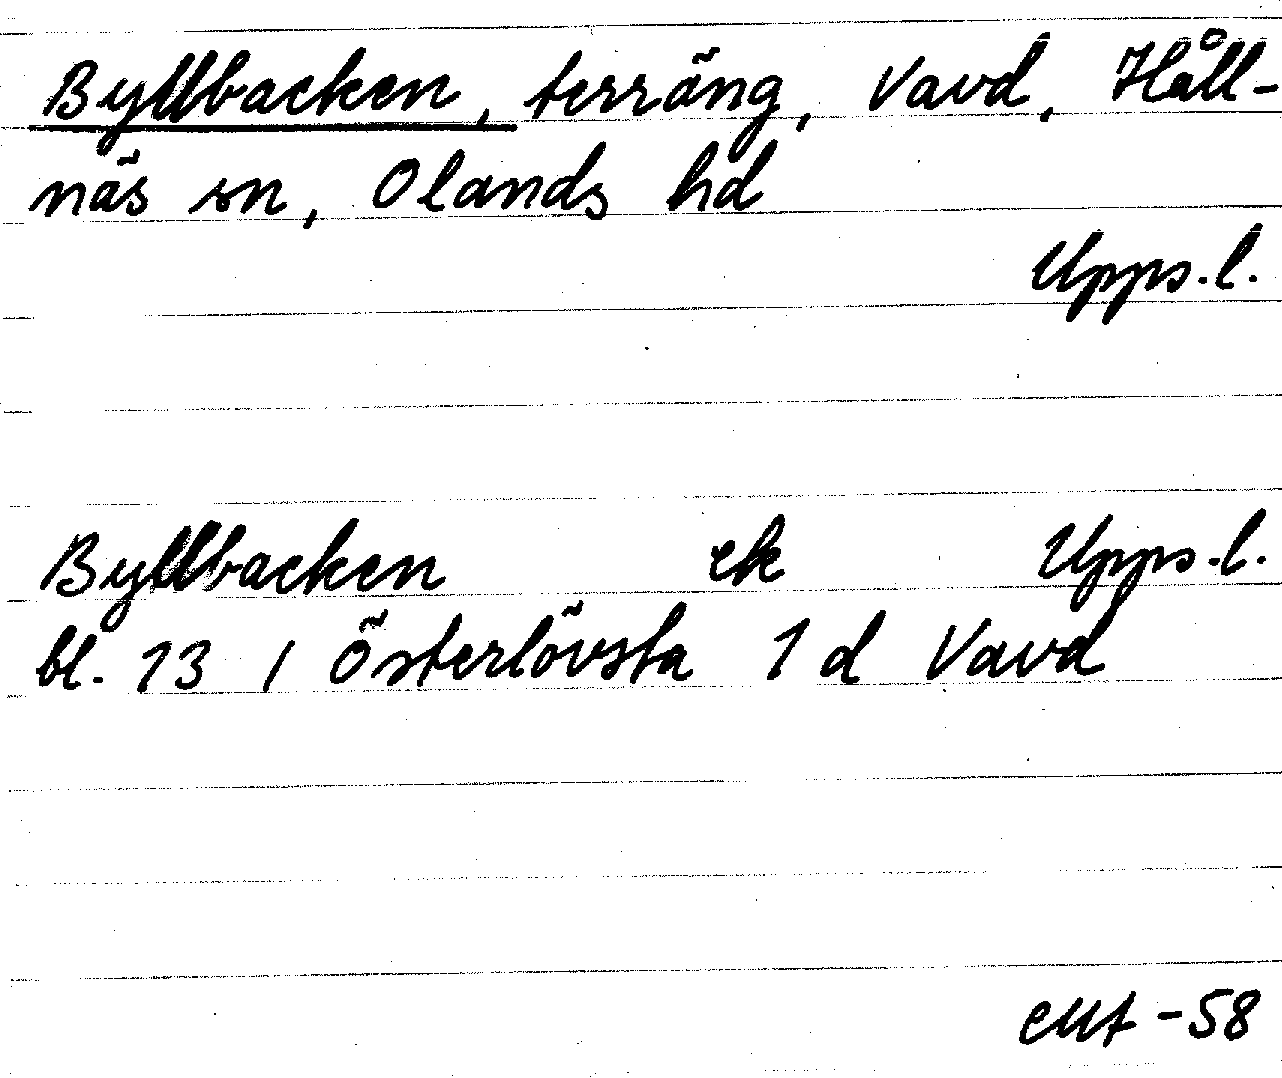 Byllbacken, terräng, Vavd, Håll-
näs sn, Olands hd
Upps.l.
Byllbacken ek Upps.l.
bl. 13 / Österlövsta 1 d Vavd
-58